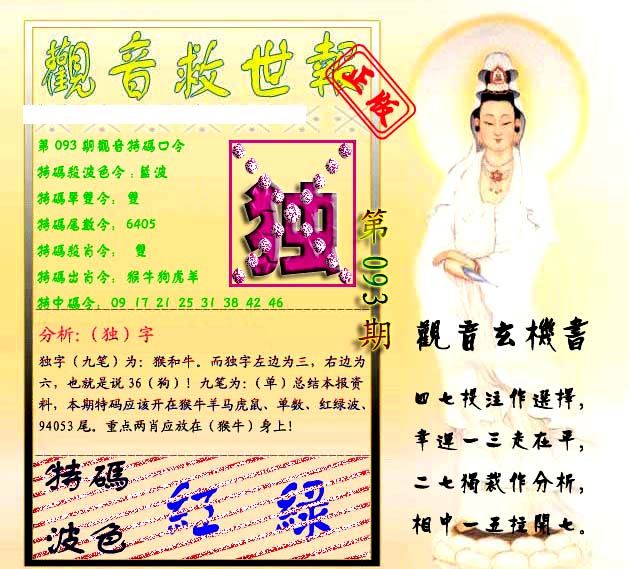 觀音救世報
正版
第093期觀音特碼口令
特碼殺波色令:藍波
特碼單雙令: 雙
特碼尾數令: 6405
特碼殺肖令: 雙
特碼出肖令: 猴牛狗虎羊
特中碼令: 09 17 21 25 31 38 42 46
独
第093期
分析:(独)字
独字(九笔)为:猴和牛。而独字左边为三,右边为
六,也就是说36(狗)!九笔为:(单)总结本报资
料,本期特码应该开在猴牛羊马虎鼠、单数、红绿波、
94053尾。重点两肖应放在(猴牛)身上!
特碼
波色
紅 綠
觀音玄機書
四七投注作選擇,
幸運一三走在平,
二七獨裁作分析,
相中一五柱開七。